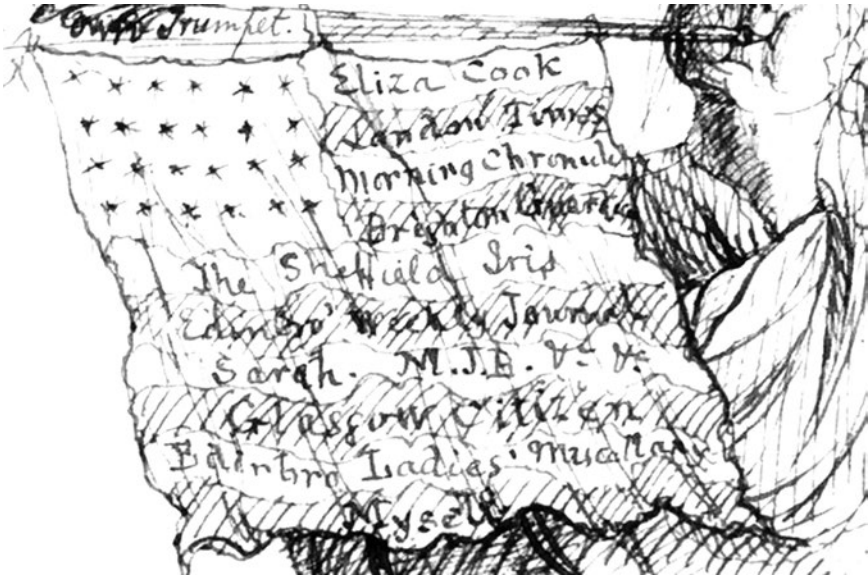 own Trumpet.
Eliza Cook
London Times
Morning Chronicle
Brighton Guardian
The Sheffield Iris
Edinbro' Weekly Journal
Sarah. M.J.E. &c. &c.
Glasgow Citizen
Edinbro Ladies' Miscellany
Myself